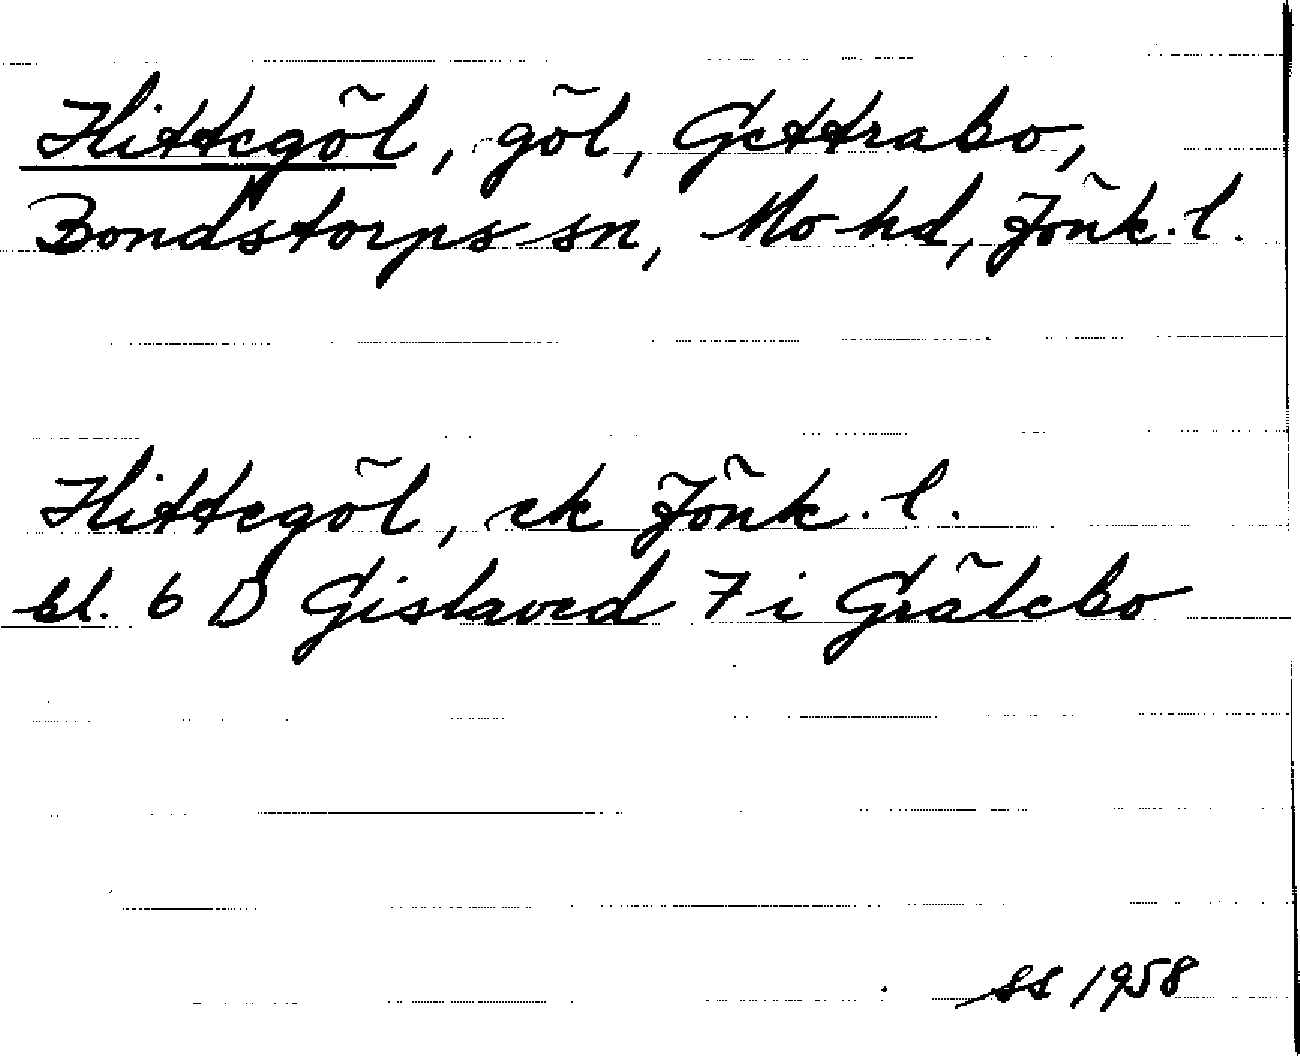 Hittegöl, göl, Gettrabo,
Bondstorps sn, Mo hd, Jönk. l.
Hittegöl, ek Jönk. l.
bl. 6 D Gislaved 7 i Grälebo
SS 1958